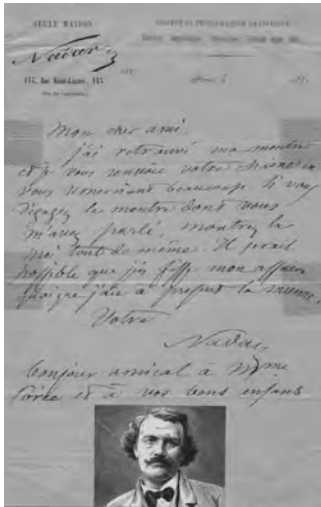 SEULE MAISON
Nadar
113, rue Saint-Lazare, 113
Mon cher ami,
j'ai retrouvé ma montre
et je vous renvoie votre
vous remerciant beaucoup. Si vous
dégagez la montre dont vous
m'avez parlé, montrez la
moi tout de même. Il serait
possible que j'en fisse mon affaire
quoique j'aie à présent la mienne.
Votre
Nadar
bonjour amical à Mme
et à vos bons enfants